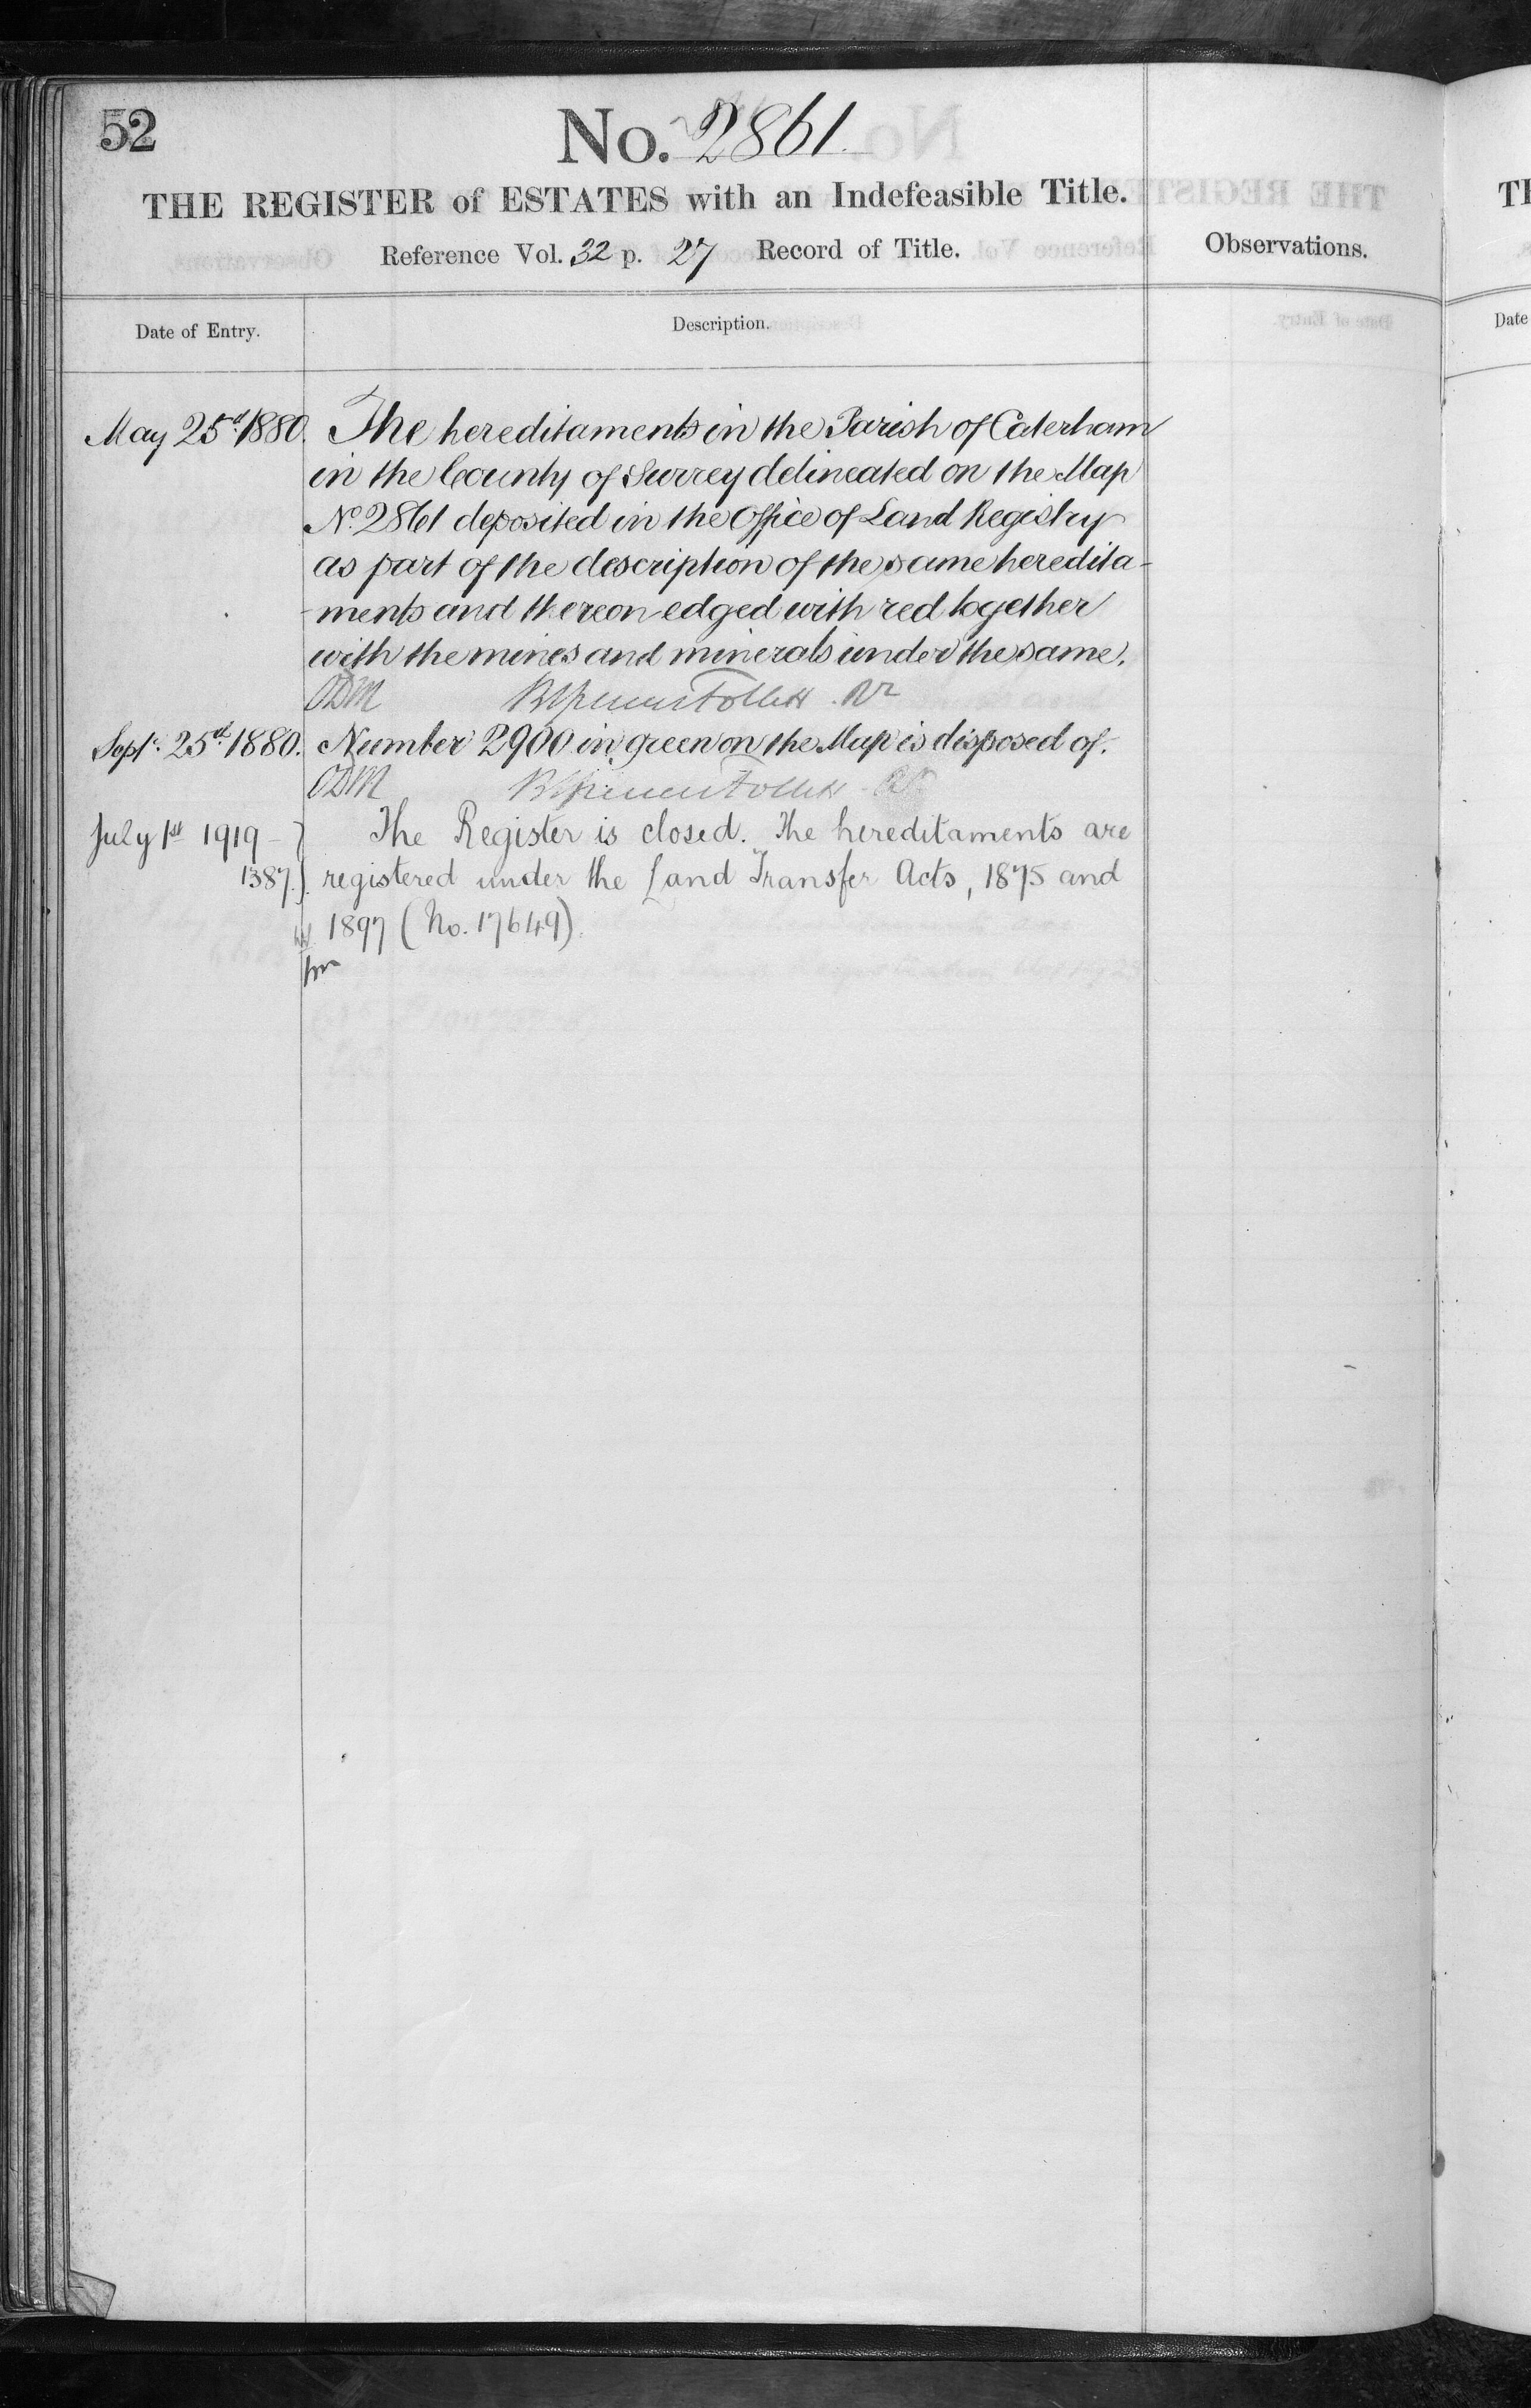 52
No. 2861.
THE REGISTER of ESTATES with an Indefeasible Title.
Reference Vol. 32 p. 27 Record of Title.
Observations.
Date of Entry.
Description.
May 25.d 1880. The hereditaments in the Parish of Caterham
in the County of Surrey delineated on the Map
No. 2861 deposited in the Office of Land Registry
as part of the description of the same heredita-
-ments and thereon edged with red together
with the mines and minerals under the same.
ODM Follett
Sept. 25.d 1880. Number 2900 in green on the Map is disposed of.
ODM Follett
July 1st 1919 - The Register is closed. The hereditaments are
1387. registered under the Land Transfer Acts, 1875 and
1897 (No. 17649).
Date